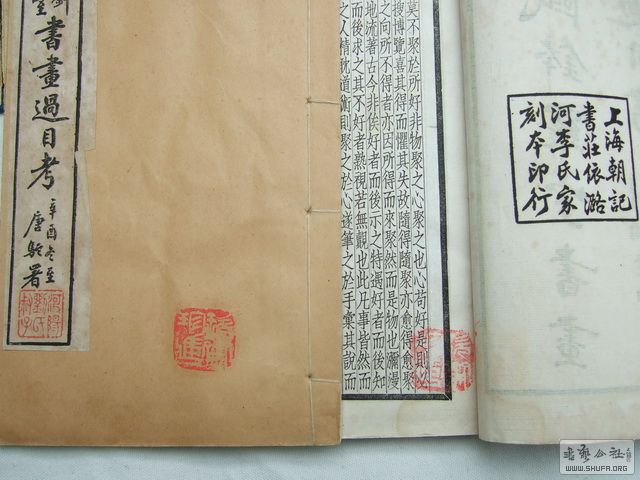 上海朝記
書莊依潞
河李氏家
刻本印行
莫不聚於所好非物聚之心聚之也心苟好是則必
搜博覽喜其得而懼其失故隨得隨聚亦愈得愈聚
之向所不得者亦因所得而來聚然而是物也瀰漫
地流著古今非俟好者而後示之特遇好者而後知
而後求之其不好者熟視若無覩也此凡事皆然而
之人精道衡則聚之於心遂筆之於手彙其說而
書畫過目考
辛酉冬至
唐駝署
WWW.SHUFA.ORG